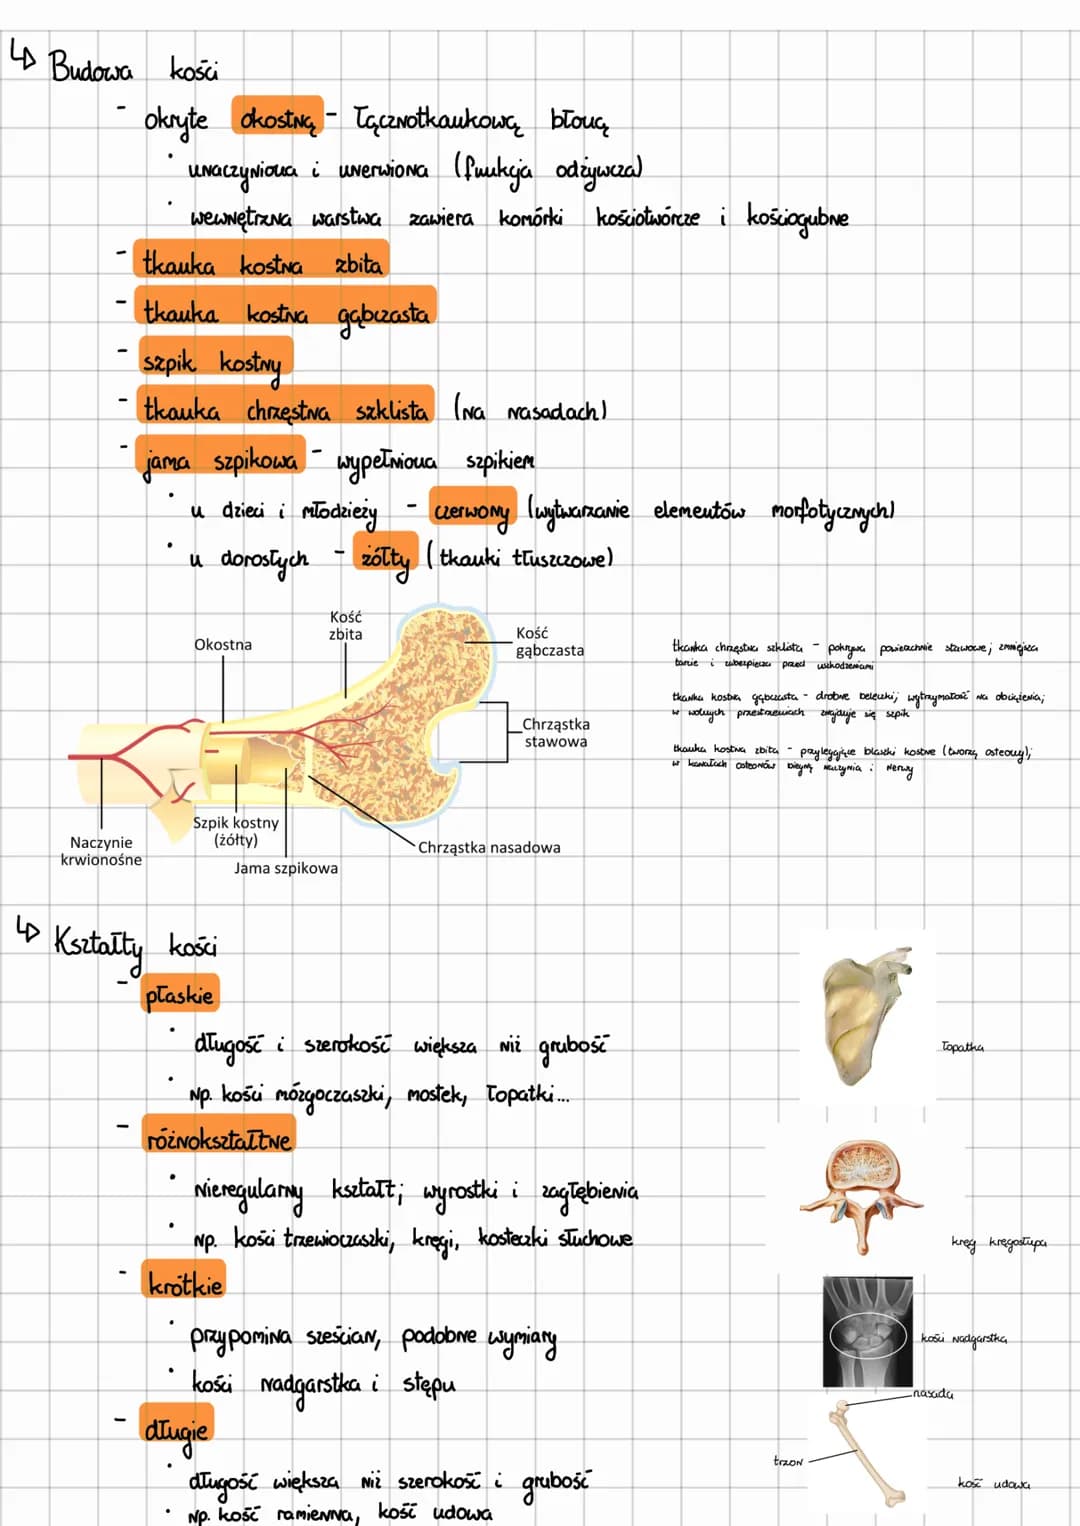 ↳ Budowa kości
- okryte okostną - łącznotkankową błoną
• unaczyniona i unerwiona (funkcja odżywcza)
• wewnętrzna warstwa zawiera komórki kościotwórcze i kościogubne
- tkanka kostna zbita
- tkanka kostna gąbczasta
- szpik kostny
- tkanka chrzęstna szklista (na nasadach)
- jama szpikowa - wypełniona szpikiem
• u dzieci i młodzieży - czerwony (wytwarzanie elementów morfotycznych)
• u dorosłych - żółty (tkanki tłuszczowe)
Okostna
Kość
zbita
Kość
gąbczasta
Chrząstka
stawowa
Chrząstka nasadowa
Szpik kostny
(żółty)
Jama szpikowa
Naczynie
krwionośne
tkanka chrzęstna szklista - pokrywa powierzchnie stawowe; zmniejsza
tarcie i zabezpiecza przed uszkodzeniami
tkanka kostna gąbczasta - drobne beleczki; wytrzymałość na obciążenia;
w wolnych przestrzeniach znajduje się szpik
tkanka kostna zbita - przylegające blaszki kostne (tworzą osteony);
w kanałach osteonów biegną naczynia i nerwy
↳ Kształty kości
- płaskie
• długość i szerokość większa niż grubość
• np. kości mózgoczaszki, mostek, łopatki...
łopatka
- różnokształtne
• nieregularny kształt; wyrostki i zagłębienia
• np. kości trzewioczaszki, kręgi, kosteczki słuchowe
kręg kręgosłupa
- krótkie
• przypomina sześcian, podobne wymiary
• kości nadgarstka i stępu
kości nadgarstka
- długie
• długość większa niż szerokość i grubość
• np. kość ramienna, kość udowa
nasada
trzon
kość udowa